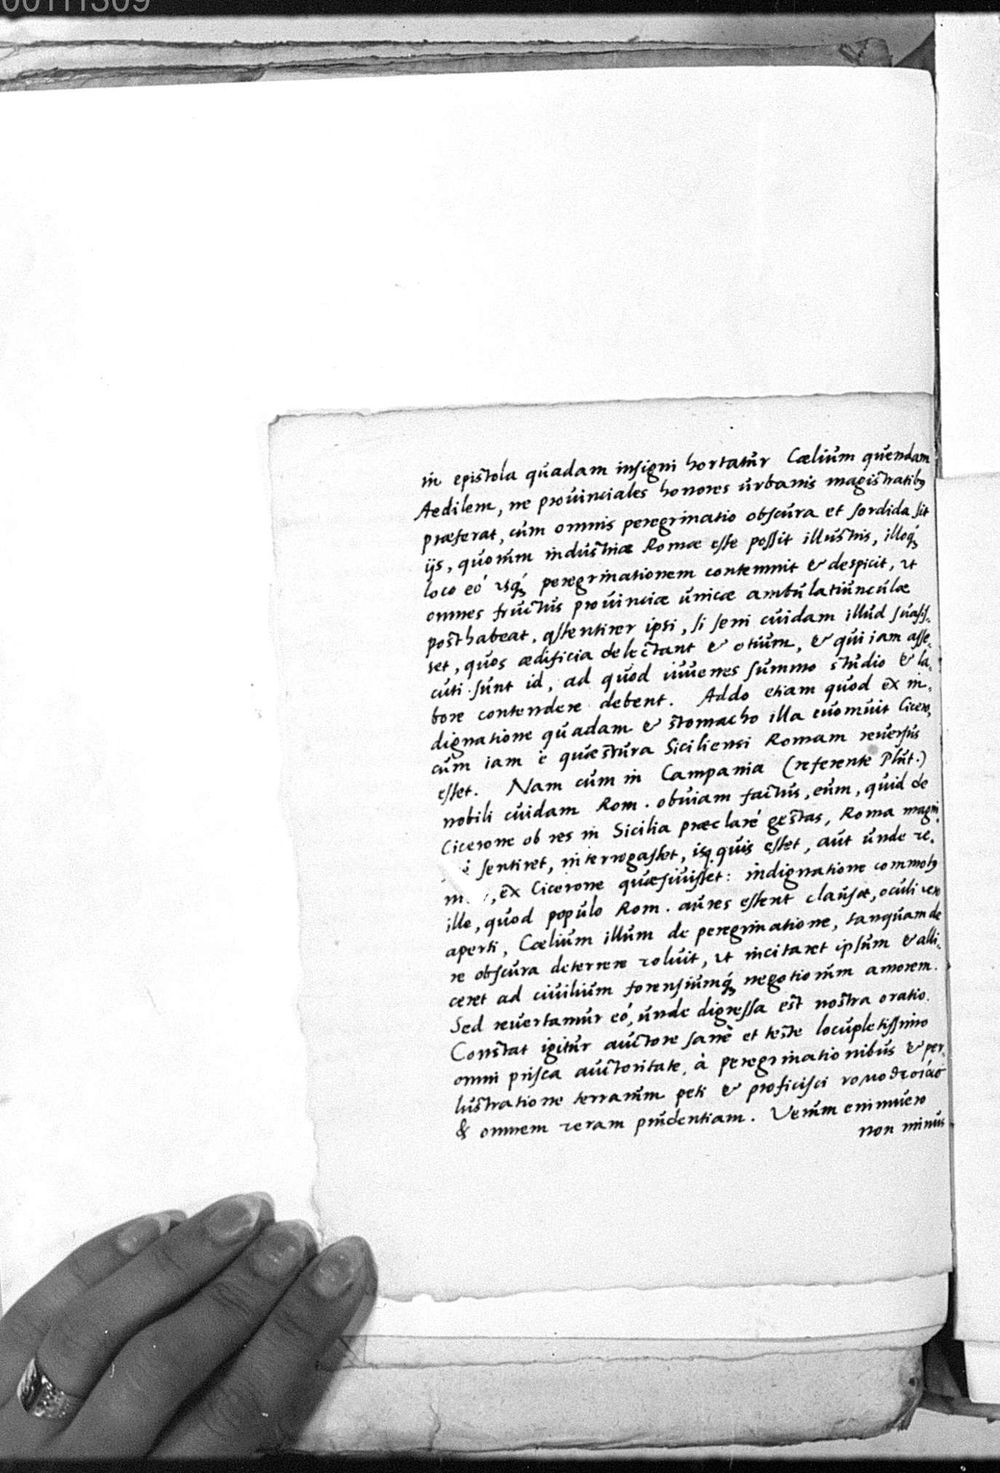 00111309
in epistola quadam insigni hortatur Cælium quendam
Aedilem, ne provinciales honores urbanis magistratibus
præferat, cùm omnis peregrinatio obscura et sordida sit
ijs, quorum industria Romæ esse possit illustris, illoq́
loco eó usq́ peregrinationem contemnit & despicit, ut
omnes fructus provinciæ unicæ ambulatiunculæ
posthabeat. assentirer ipsi, si seni cuidam illud suasis-
set, quos ædificia delectant & otium, & qui iam asse-
cuti sunt id, ad quod iuvenes summo studio & la-
bore contendere debent. Addo etiam quod ex in-
dignatione quadam & stomacho illa evomuit Cicero,
cùm iam è quæstura Siciliensi Romam reversus
esset. Nam cùm in Campania (referente Plut.)
nobili cuidam Rom. obviam factus, eum, quid de
Cicerone ob res in Sicilia præclaré gestas, Roma magni
sentiret, interrogasset, isq́ quis esset, aut unde ve-
, ex Cicerone quæsivisset: indignatione commotus
ille, quod populo Rom. aures essent clausæ, oculi vero
aperti, Cælium illum de peregrinatione, tanquam de
re obscura deterrere voluit, ut incitaret ipsum & alli-
ceret ad civilium forensiumq́ negotiorum amorem.
Sed revertamur eó, unde digressa est nostra oratio.
Constat igitur auctore sanè et teste locupletissimo
omni prisca auctoritate, à peregrinationibus & per-
lustratione terrarum peti & proficisci
& omnem veram prudentiam. Verùm enimvero
non minus